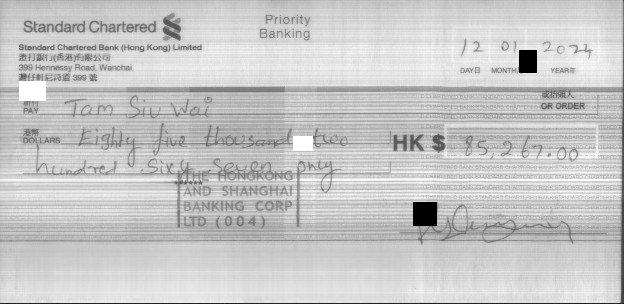 Standard Chartered
Priority
Banking
Standard Chartered Bank (Hong Kong) Limited
渣打銀行(香港)有限公司
399 Hennessy Road, Wanchai
灣仔軒尼詩道 399 號
12 01 2024
DAY日 MONTH YEAR年
PAY Tam Siu Wai
或持票人
OR ORDER
港幣
DOLLARS Eighty five thousand two
hundred Sixty Seven only
HK $ 85,267.00
THE HONGKONG
AND SHANGHAI
BANKING CORP
LTD (004)